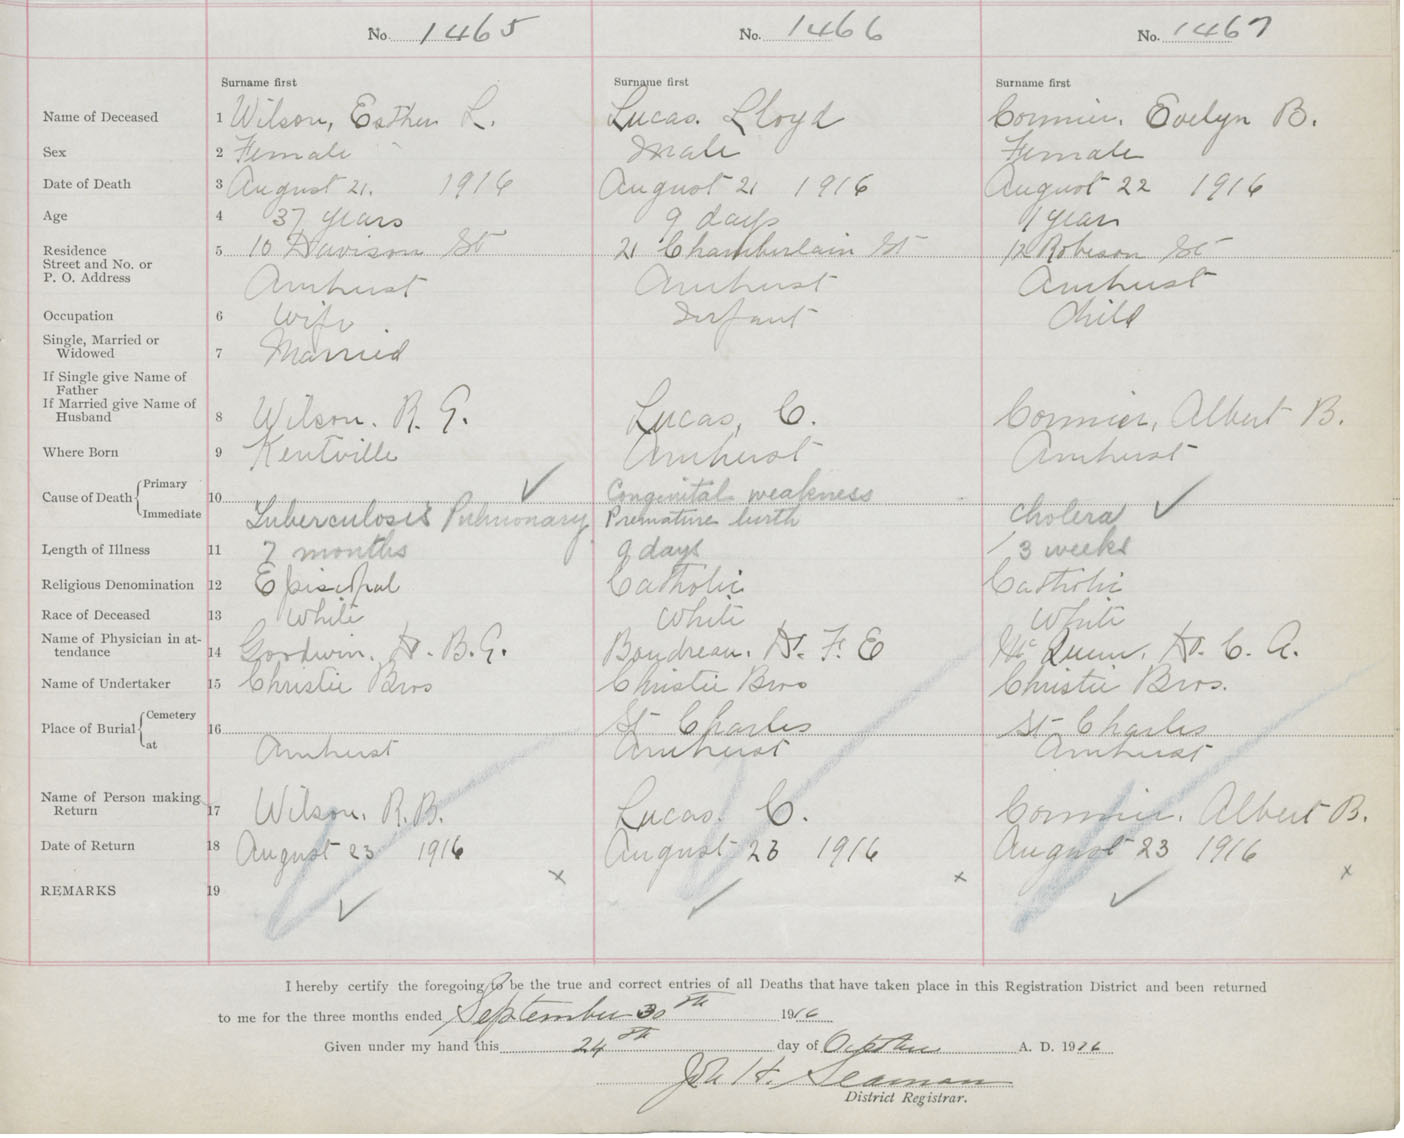 No. 1465 No. 1466 No. 1467
Surname first Surname first Surname first
Name of Deceased 1 Wilson, Esther L. Lucas. Lloyd Cormier. Evelyn B.
Sex 2 Female Male Female
Date of Death 3 August 21. 1916 August 21 1916 August 22 1916
Age 4 37 years 9 days 1 year
Residence
Street and No. or 5 10 Davison St 21 Chamberlain St 12 Robeson St
P. O. Address Amherst Amherst Amherst
Occupation 6 Wife Infant Child
Single, Married or
Widowed 7 Married
If Single give Name of
Father
If Married give Name of
Husband 8 Wilson. R. G. Lucas, C. Cormier, Albert B.
Where Born 9 Kentville Amherst Amherst
Cause of Death Primary 10 Congenital weakness
Immediate Tuberculosis Pulmonary Premature birth Cholera
Length of Illness 11 7 months 9 days 3 weeks
Religious Denomination 12 Episcipal Catholic Catholic
Race of Deceased 13 White White White
Name of Physician in at-
tendance 14 Goodwin. D. B. G. Boudreau. D. F. E Mc Quinn. D. C. A.
Name of Undertaker 15 Christie Bros Christie Bros Christie Bros.
Place of Burial Cemetery 16 St Charles St Charles
at Amherst Amherst Amherst
Name of Person making
Return 17 Wilson. R. B. Lucas. C. Cormier. Albert B.
Date of Return 18 August 23 1916 August 23 1916 August 23 1916
REMARKS 19
I hereby certify the foregoing to be the true and correct entries of all Deaths that have taken place in this Registration District and been returned
to me for the three months ended September 30th 1916
Given under my hand this 24th day of October A. D. 1916
Jno H. Seaman
District Registrar.